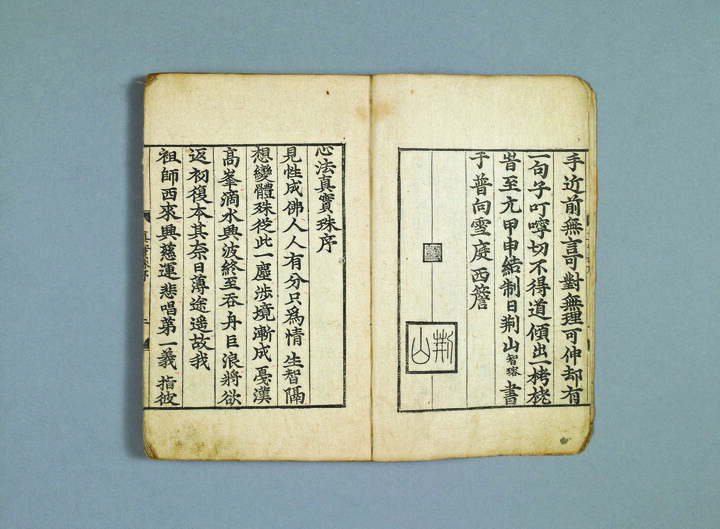 手近前無言可對無理可伸却有
一句子叮嚀切不得道傾出一栲栳
旹至元甲申結制日荆山智璨書
于普向雪庭西簷
荆山
心法真實珠序
見性成佛人人有分只爲情生智隔
想變體殊從此一塵涉境漸成戞漢
高峯滴水興波終至吞舟巨浪將欲
返初復本其奈日薄途遥故我
祖師西來興慈運悲唱第一義指彼